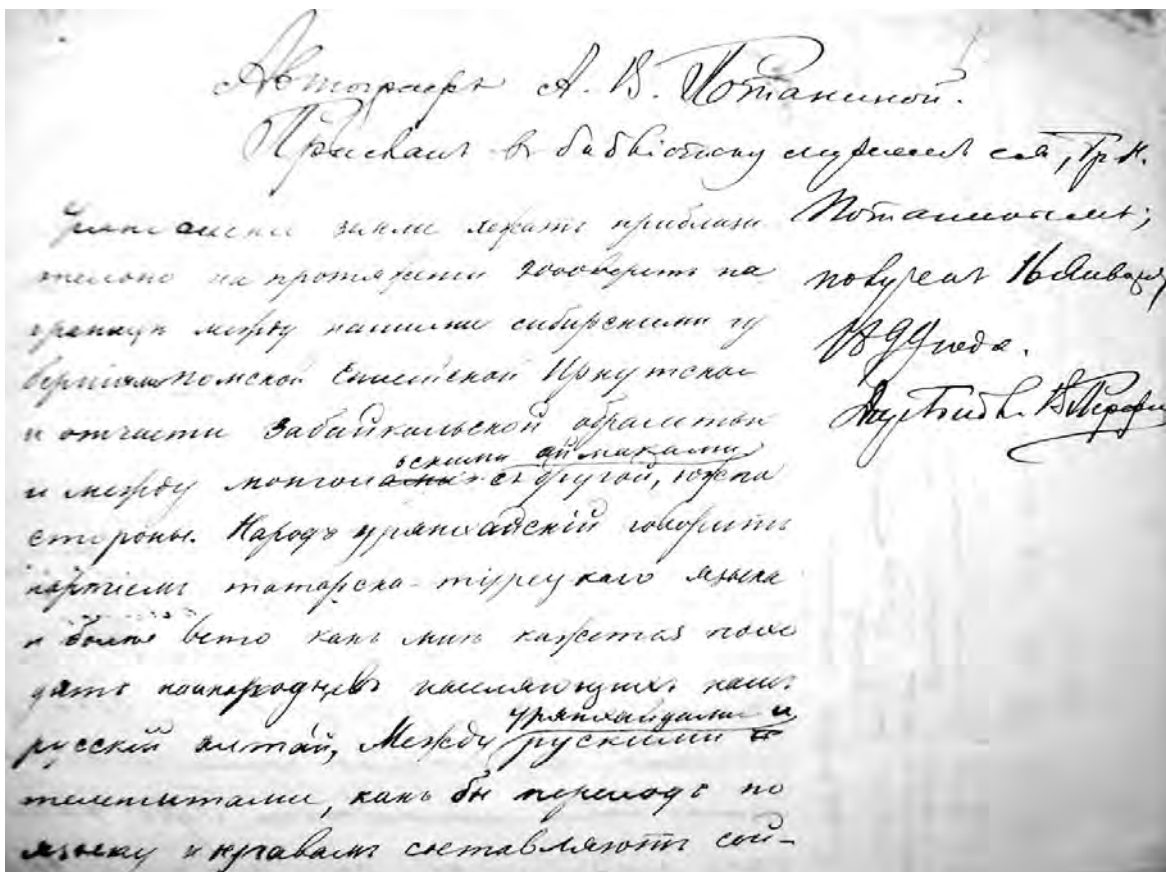 Автографъ А. В. Потаниной.
Присланъ въ библіотеку мужемъ ея, Гр. Н.
Потанинымъ;
полученъ 16 Января
года.
земли лежатъ приблизи
тельно на протяженіи 2000 верстъ на
границѣ между нашими сибирскими гу
берніями томской Енисейской Иркутской
и отчасти Забайкальской областью
и между монгольскими аймаками съ другой, южна
стороны. Народъ урянхайскій говоритъ
нарѣчіемъ татарско-турецкаго языка
и болѣе всего какъ мнѣ кажется похо
дятъ на инородцевъ населяющихъ нашъ
русскій алтай, Между урянхайцами и рускими
теленгитами, какъ бы переходъ по
языку и нравамъ составляютъ сой-